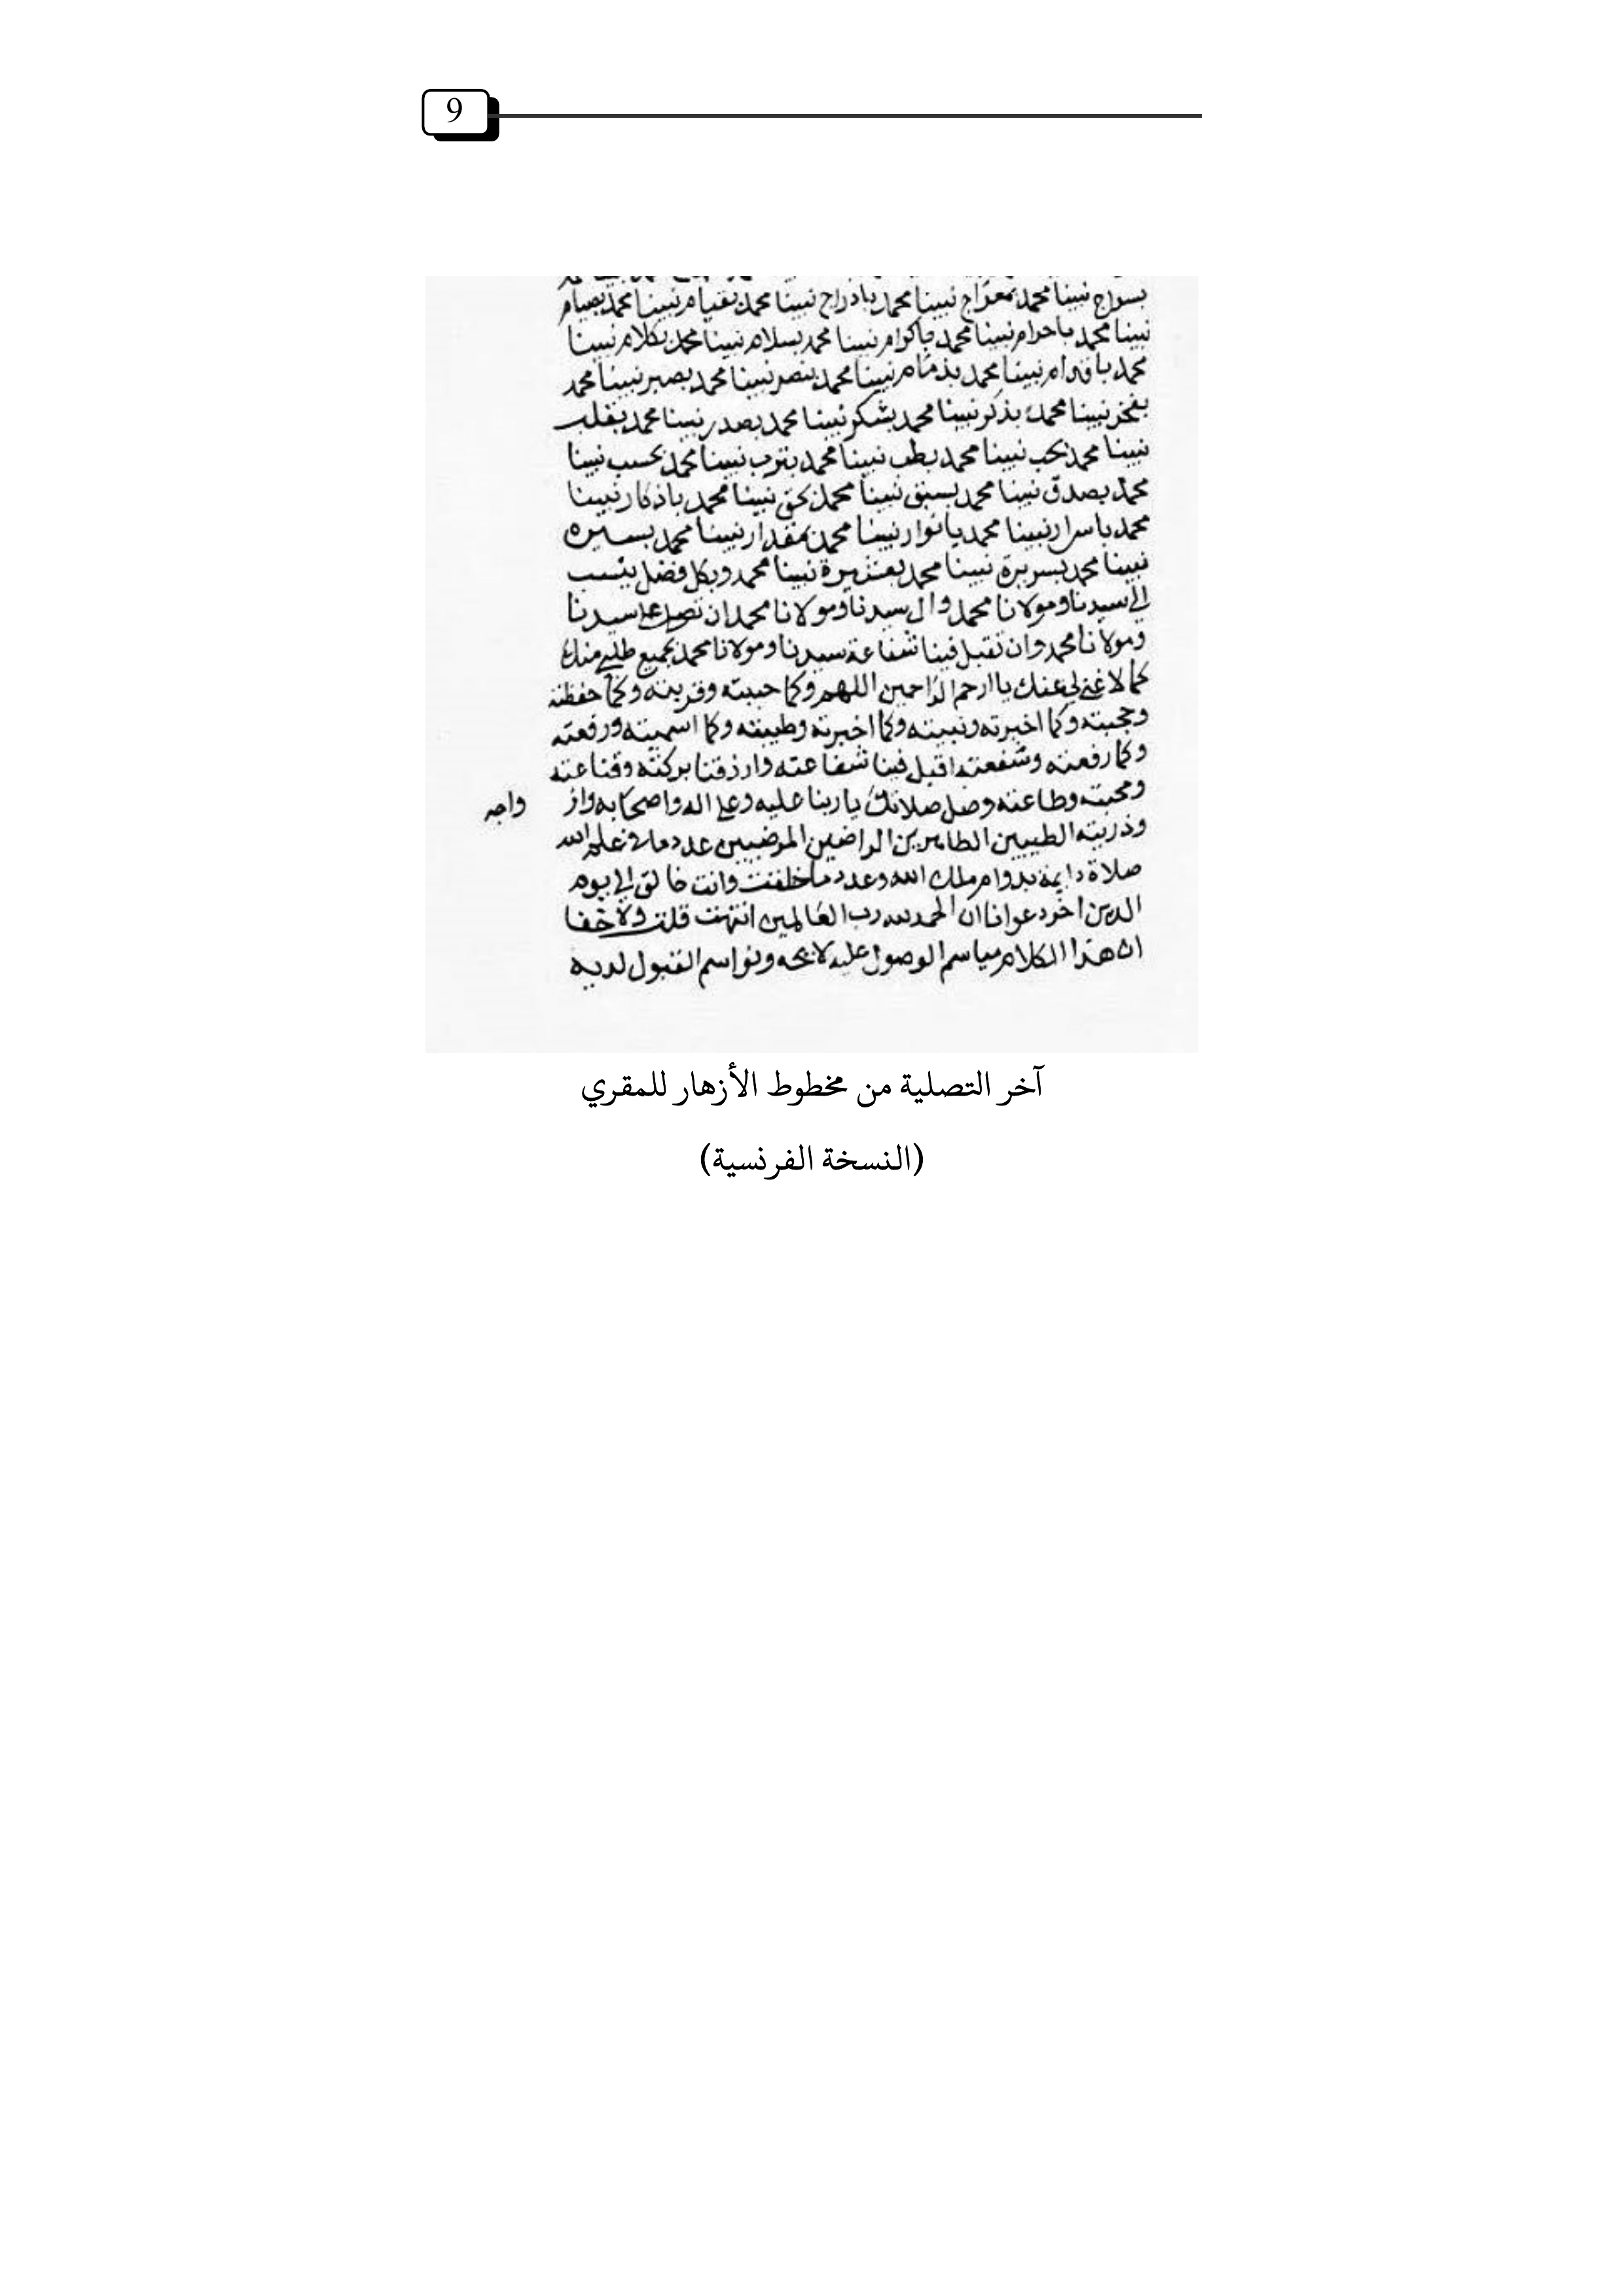 9
بسراج نبينا محمد بمعراج نبينا محمد بادراج نبينا محمد بقيام نبينا محمد بصيام
نبينا محمد باحرام نبينا محمد باكرام نبينا محمد بسلام نبينا محمد بكلام نبينا
محمد باقدام نبينا محمد بذمام نبينا محمد بنصر نبينا محمد بصبر نبينا محمد
بفخر نبينا محمد بذكر نبينا محمد بشكر نبينا محمد بصدر نبينا محمد بقلب
نبينا محمد بحب نبينا محمد بطب نبينا محمد بترب نبينا محمد بحسب نبينا
محمد بصدق نبينا محمد بسبق نبينا محمد بحق نبينا محمد باذكار نبينا
محمد باسرار نبينا محمد بانوار نبينا محمد بمقدار نبينا محمد بسيره
نبينا محمد بسريرة نبينا محمد بعشيرة نبينا محمد وبكل فضل ينسب
الي سيدنا ومولانا محمد وال سيدنا ومولانا محمد ان تصلي علي سيدنا
ومولانا محمد وان تقبل فينا شفاعة سيدنا ومولانا محمد بجميع طلبي منك
كما لا غني لي عنك يا ارحم الراحمين اللهم وكما حببته وقربته وكما حفظته
وحجبته وكما اخبرته ونبيته وكما اخبرته وطيبته وكما اسميته ورفعته
وكما رفعته وشفعته اقبل فينا شفاعته وارزقنا بركته وقناعته
ومحبته وطاعته وصل صلاتك يا ربنا عليه وعلي اله واصحابه واز واجه
وذريته الطيبين الطاهرين الراضين المرضيين عدد ما في علم الله
صلاة دايمة بدوام ملك الله وعدد ما خلقت وانت خالق الي يوم
الدين اخر دعوانا ان الحمد لله رب العالمين انتهت قلت ولا خفا
ان هذا الكلام مياسم الوصول عليه لايحه ونواسم القبول لديه
آخر التصلية من مخطوط الأزهار للمقري
(النسخة الفرنسية)